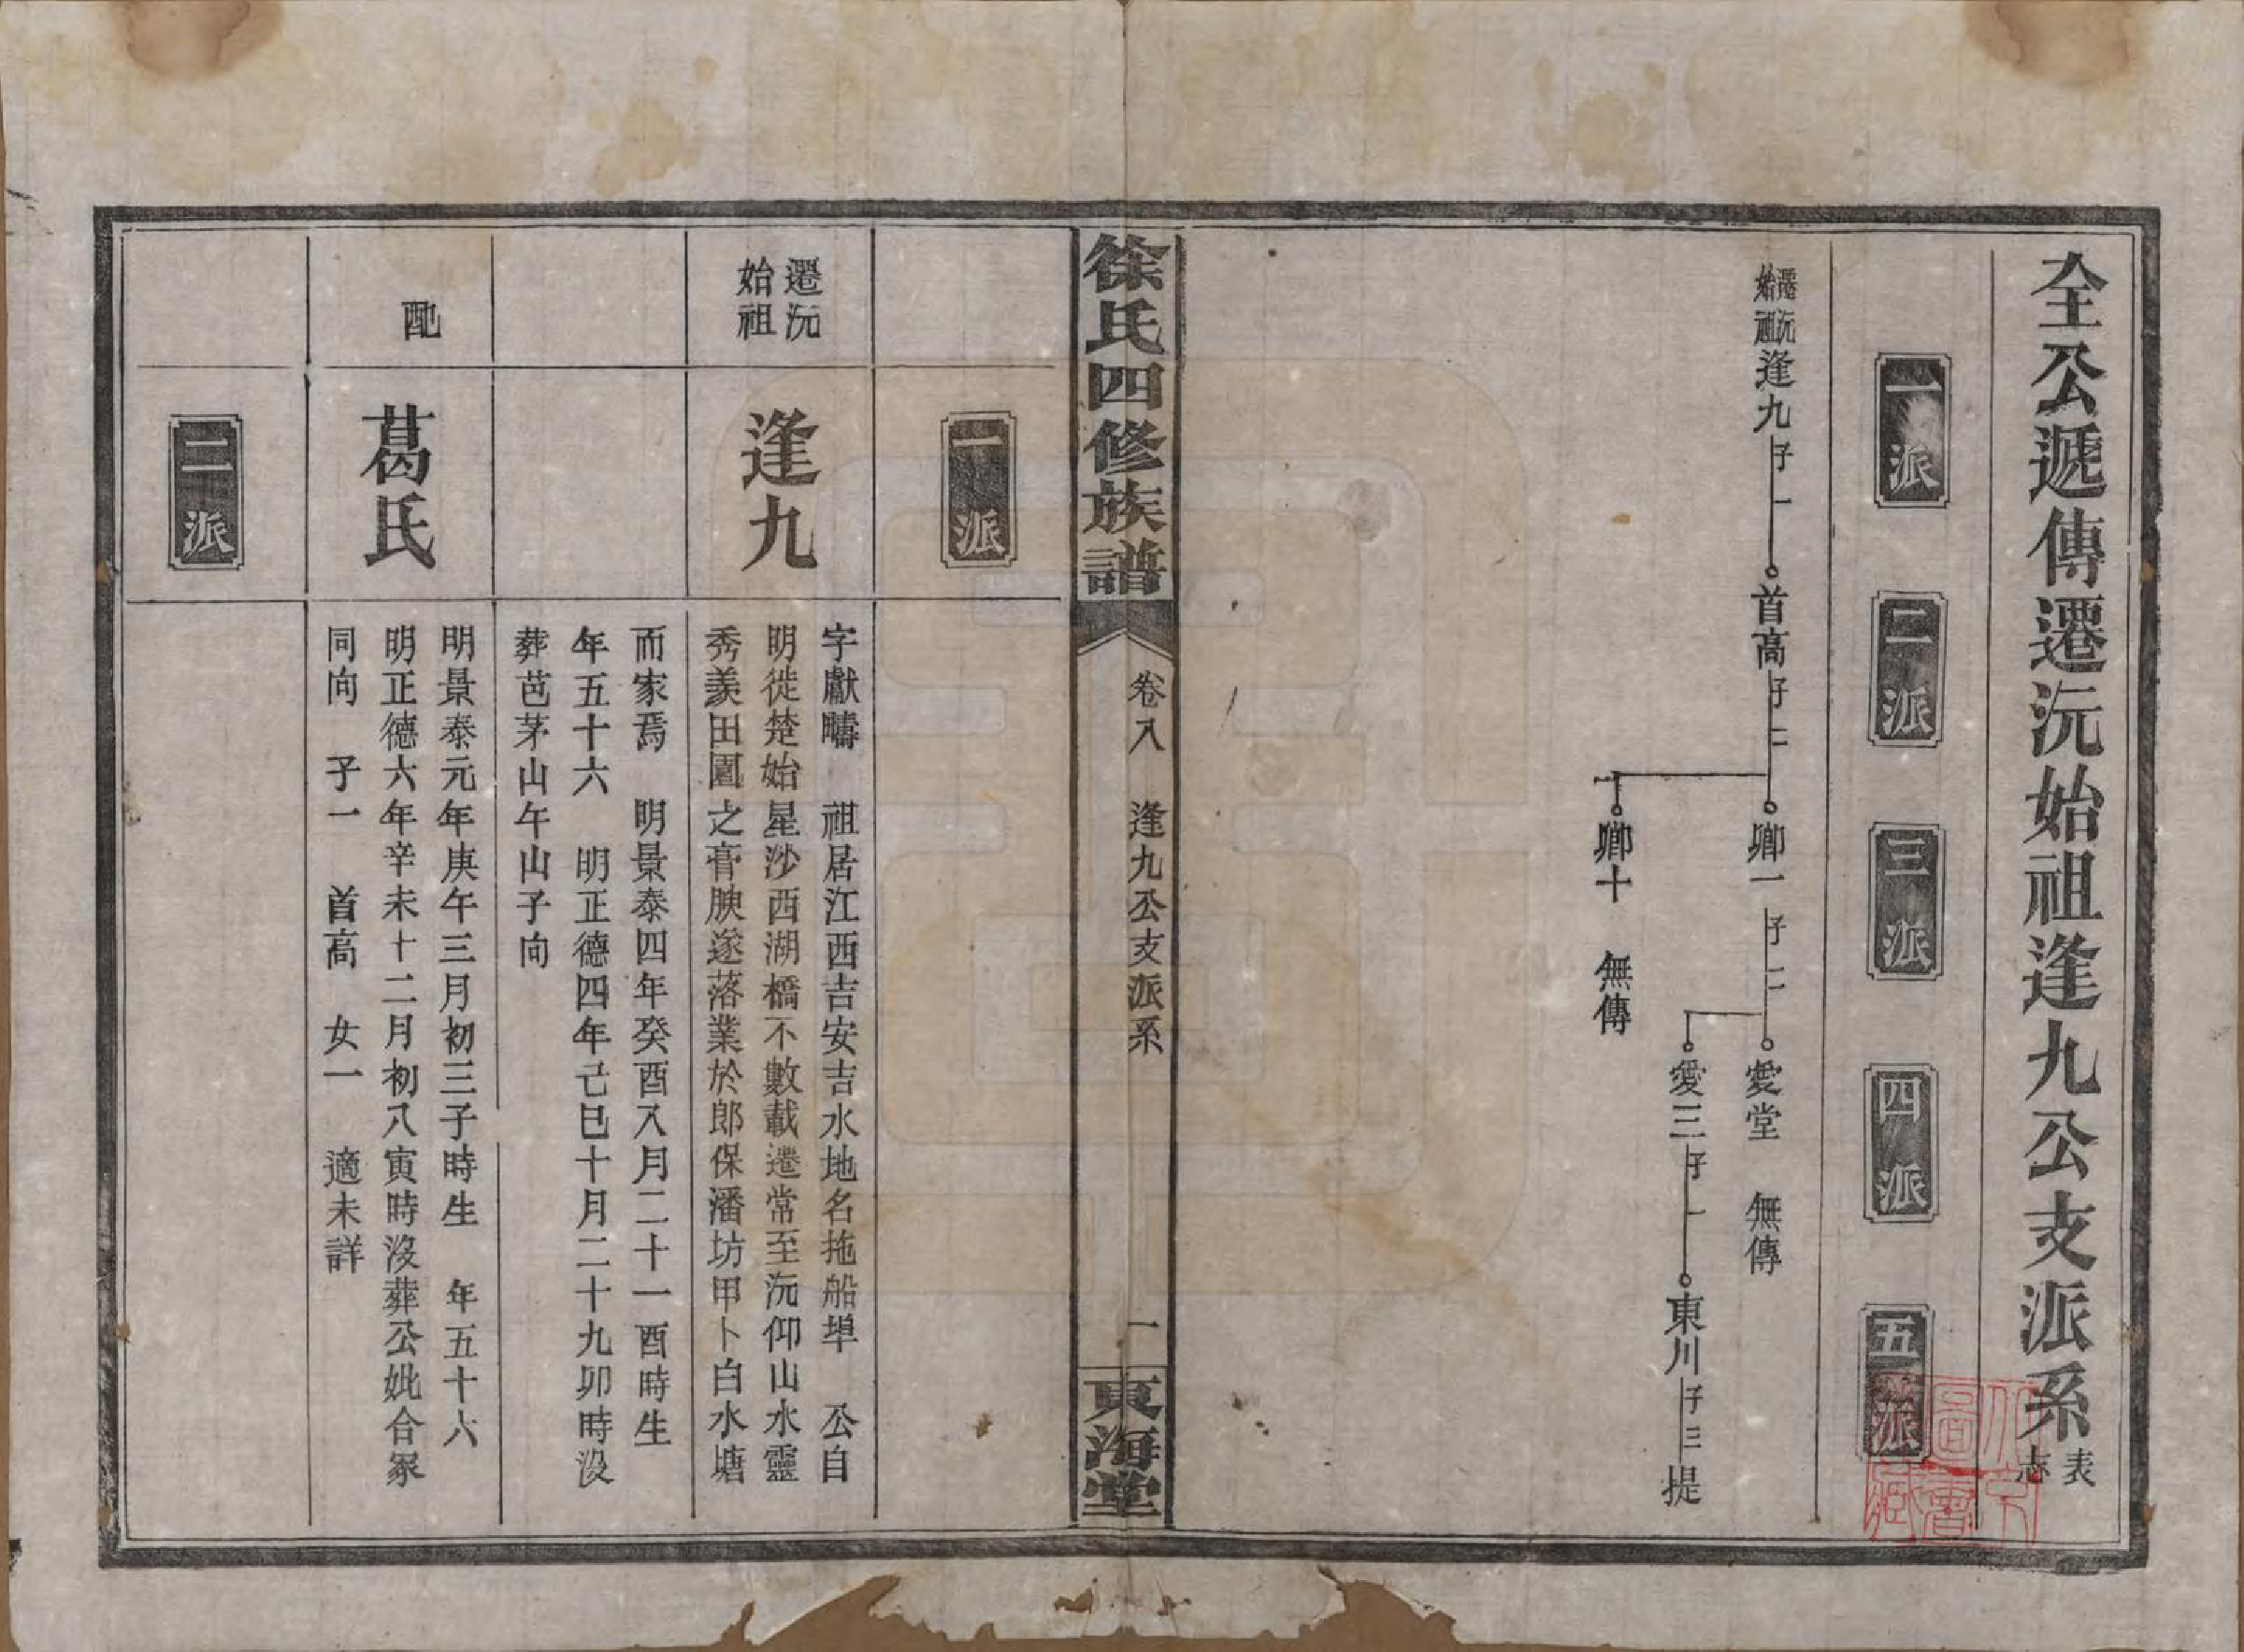 全公遞傳遷沅始祖逢九公支派系表志
一派
二派
三派
四派
五派
遷沅始祖逢九子一
首高子二
卿一子二
愛堂 無傳
愛三子一
東川子三提
卿十 無傳
徐氏四修族譜
卷八 逢九公支派系 一
東海堂
一派
遷沅始祖
逢九
字獻疇 祖居江西吉安吉水地名拖船埠 公自
明徙楚始星沙西湖橋不數載遷常至沅仰山水靈
秀羨田園之膏腴遂落業於郎保潘坊甲卜白水塘
而家焉 明景泰四年癸酉八月二十一酉時生
年五十六 明正德四年己巳十月二十九卯時沒
葬芭茅山午山子向
配
葛氏
明景泰元年庚午三月初三子時生 年五十六
明正德六年辛未十二月初八寅時沒葬公妣合冢
同向 子一 首高 女一 適未詳
二派